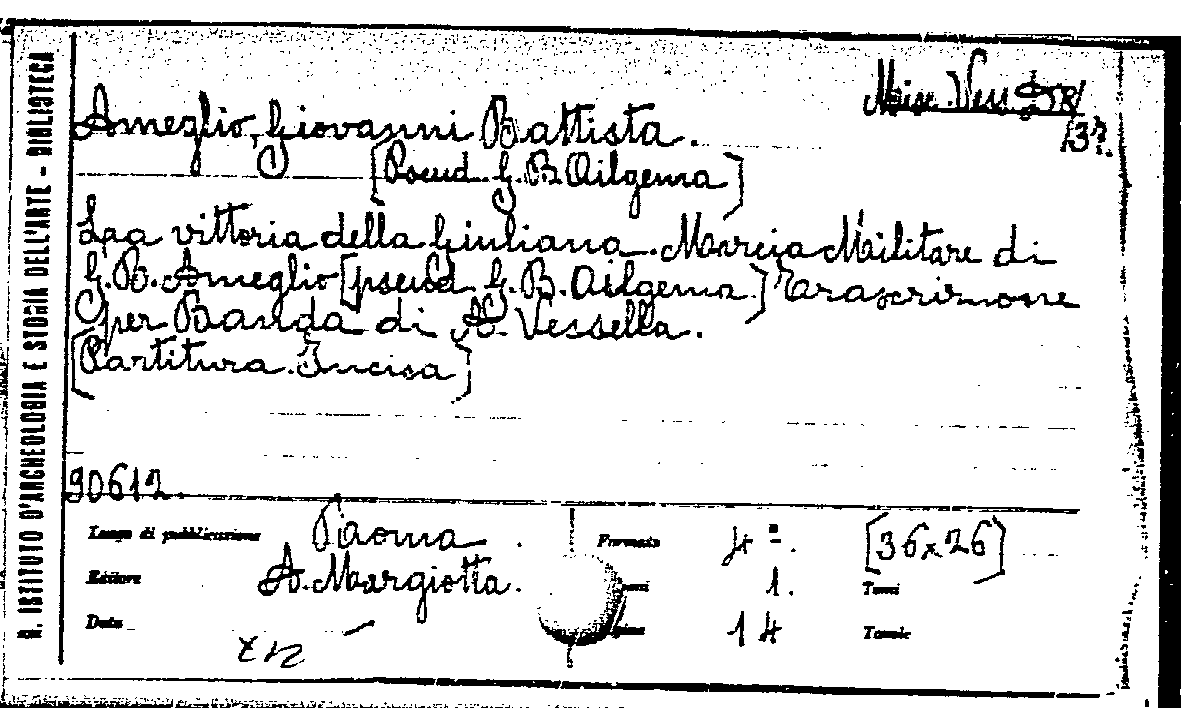 R. ISTITUTO D'ARCHEOLOGIA E STORIA DELL'ARTE - BIBLIOTECA
Misc. Vess. 58/
137.
Ameglio, Giovanni Battista.
[Pseud. G. B. Ailgema]
La vittoria della Giuliana. Marcia Militare di
G. B. Ameglio [pseud. G. B. Ailgema.] Trascrizione
per Banda di A. Vessella.
[Partitura. Incisa]
90612.
Luogo di pubblicazione Roma . Formato 4º. [36x26]
Editore A. Margiotta. 1. Tomi
Data — 14 Tavole